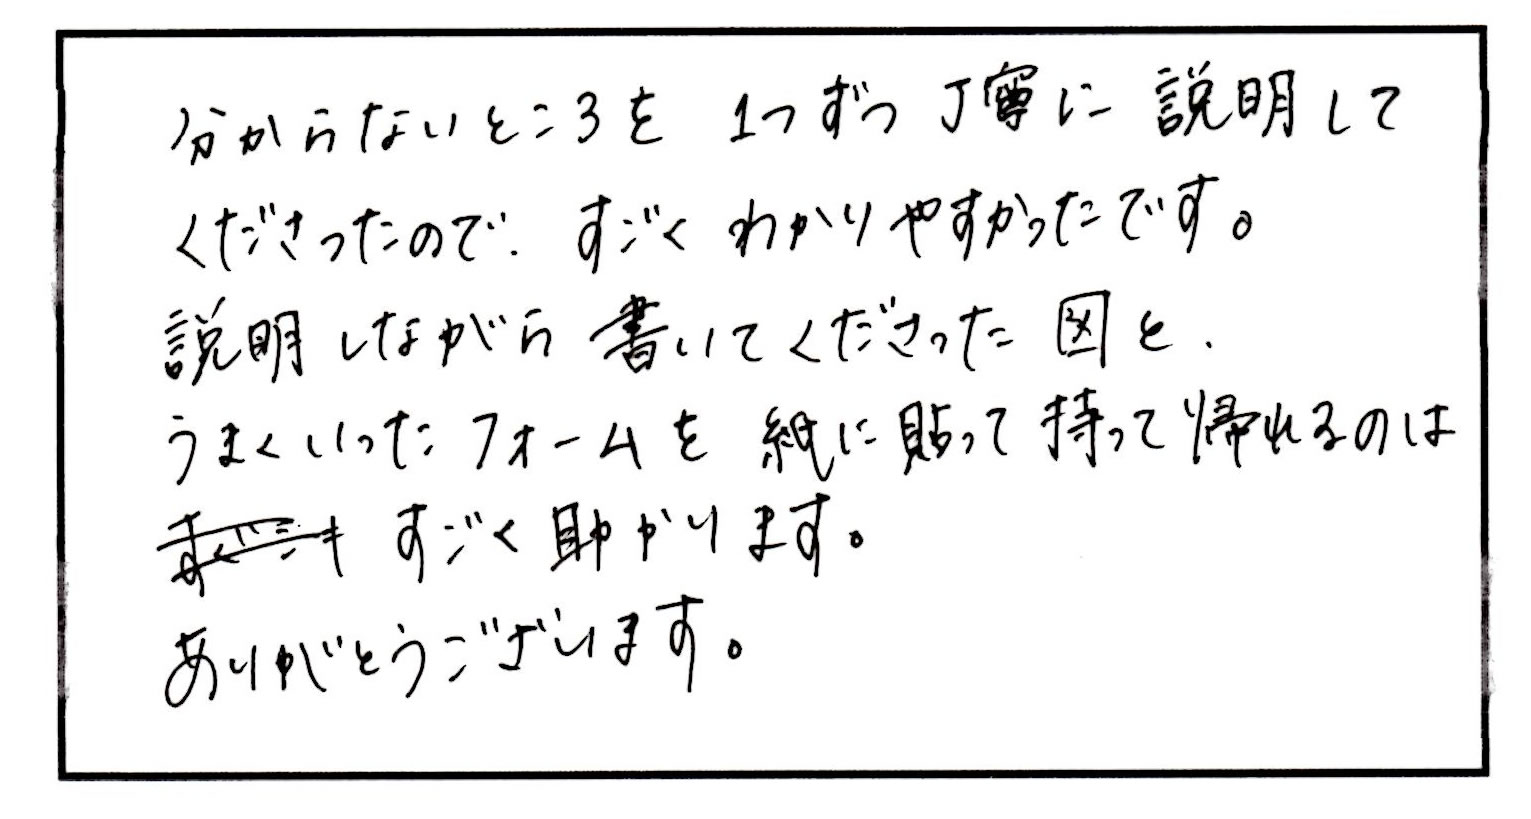 分からないところを 1つずつ 丁寧に 説明して
くださったので、すごく わかりやすかったです。
説明しながら 書いてくださった 図と、
うまくいった フォームを 紙に 貼って 持って 帰れるのは
すごく 助かります。
ありがとうございます。